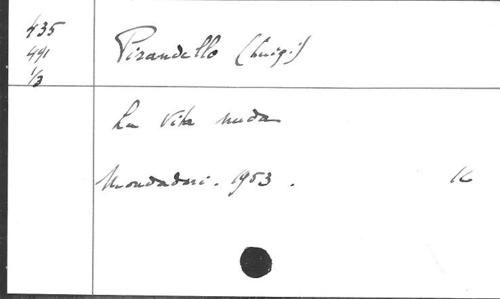 435
441
1/3
Pirandello (Luigi)
La Vita nuda
Mondadori. 1953. 16